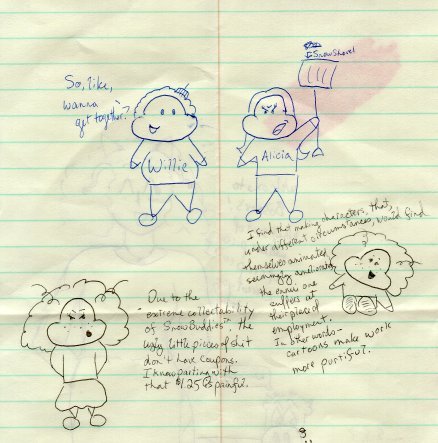 SnowShovel
So, like,
wanna
get together?
Willie
Alicia
I find that making characters, that,
under different circumstances, would find
themselves animated
seemingly ameliorates
the ennui one
suffers at
their place of
employment.
In other words-
cartoons make work
more purtiful.
Due to the
extreme collectability
of SnowBuddies™, the
ugly little pieces of shit
don't have coupons.
I know parting with
that $1.25 is painful.